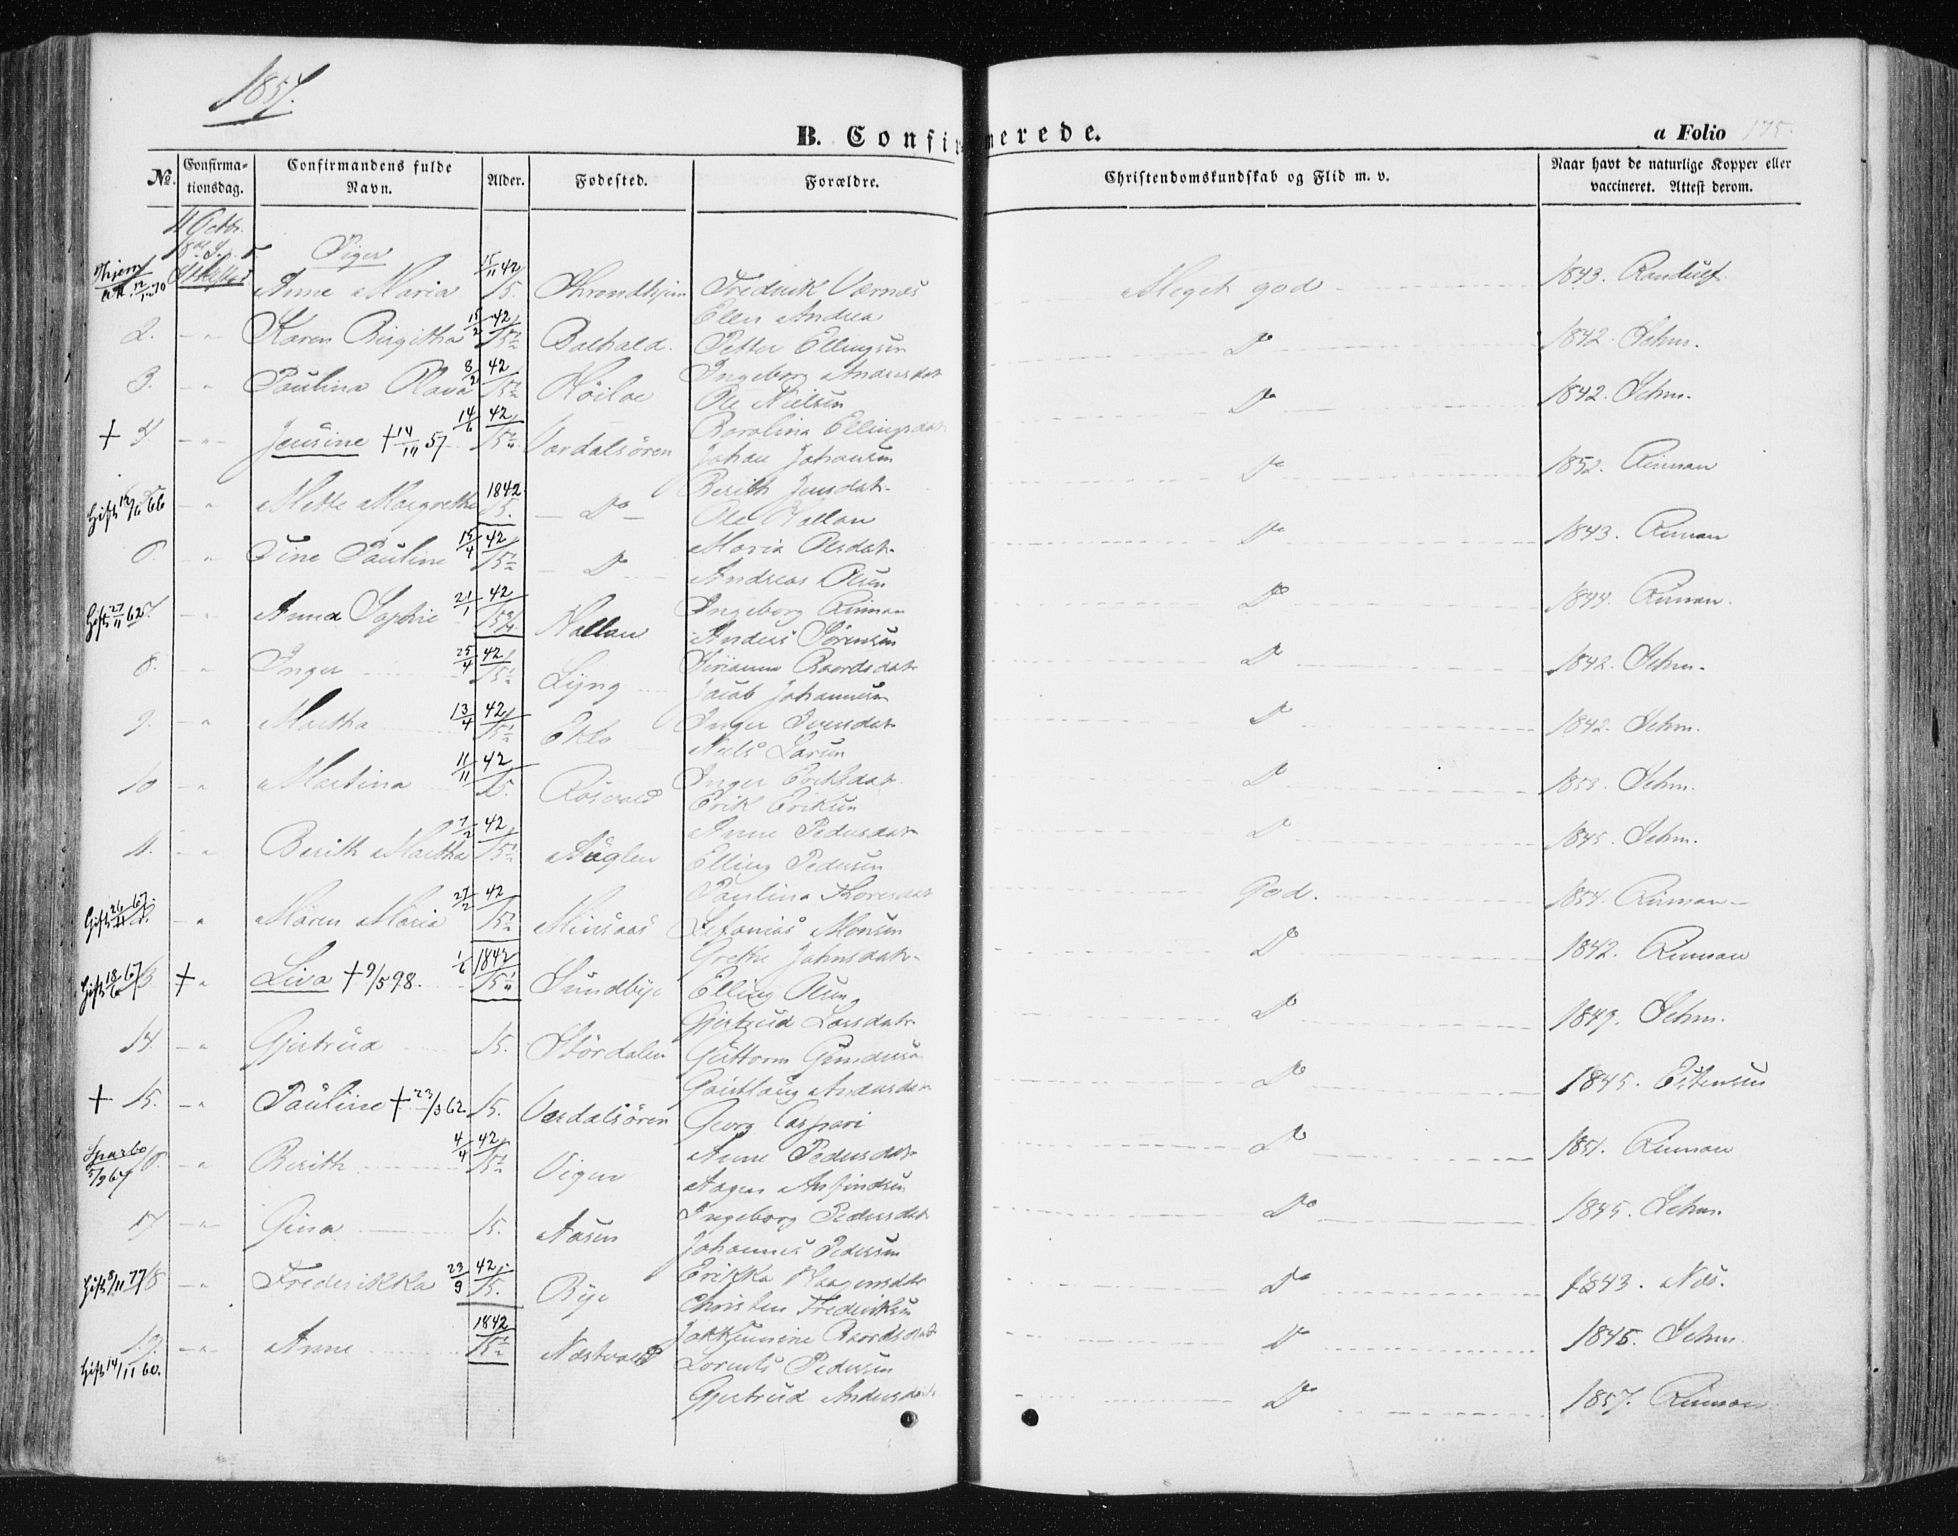 1857.
B. Confirmerede.
a Folio 175.
No. Confirmationsdag. Confirmandens fulde Navn. Alder. Fødested. Forældre. Christendomskundskab og Flid m. v. Naar havt de naturlige Kopper eller vaccineret. Attest derom.
4 Octbr.
Piger
12/12 70 Anne Maria 15/11 42 15. Throndhjem Fredrik Værnes Meget god 1843. Randulf
Ellen Andrea
2. - " Karen Birgitha 15/2 42 15½ Balhald. Petter Ellingsen Do 1842. Schm.
Ingeborg Andersdat
3. " Paulina Olava 8/2 42 15½ Ole Nielsen Do 1842. Schm.
Karolina Ellingsdat
+ 4. - " Jensine + 14/11 57 14/6 42 15¼ Værdalsøren Johan Johansen Do 1852. Rinnan
Berith Jensdat.
Gift 12/6 66 5 - " Mette Margrethe 1842 15. - Do - Ole Hallan Do 1843. Rinnan
Maria Olsdat.
6. " Tine Pauline 15/4 42 15½ - Do Andreas Olsen Do 1844. Rinnan.
Ingeborg Rinnan
Gift 27/11 62 7. " Anna Sophie 21/1 42 15¾ Hallan Anders Sørensen Do 1842. Schm.
Baardsdat
8. " Inger 25/4 42 15½ Lyng Jacob Johannesen Do 1842. Schm.
Inger Svendsdat
9. - " Martha 13/4 42 15½ Eklo Niels Larsen Do 1853. Schm.
Inger Eriksdat.
10 - " Martina 11/11 42 15. Rosvold Erik Eriksen Do 1845. Schm.
Anne Pedersdat
11. - " Berith Martha 7/2 42 15½ Elling Pedersen God. 1854. Rinnan
Paulina Thoresdat
Gift 26/11 67. 12. " Maren Maria 27/2 42 15½ Minsaas Zefanias Monsen Do 1842. Rinnan
Grethe Johnsdat.
Gift 18/6 67 13 + " Liva + 9/5 98. 1/6 1842 15¼ Sundbye Elling Olsen Do 1849. Schm.
Gjertrud Larsdat.
14. - " Gjertrud 15. Størdalen Guttorm Do 1845. Estensen
Andersdat
+ 15. - " Pauline + 23/3 62 15. Værdalsøren Georg Caspari Do 1851. Rinnan
Anne Pedersdat
Sparbo 5/9 67 16. " Berith 4/4 42 15½ Vigen Aagen Arfindsen Do 1845. Schm.
Ingeborg Pedersdat
17 - " Gina 15. Aasen Johannes Pedersen Do 1843. Nis.
Erikka Haagensdat
Gift 8/11 77 18 - " Frederikka 23/9 42. 15. Bye Christen Fredriksen Do 1845. Schm.
Baardsdat
19. - " Anne 1842 15½ Næstvold Lorents Pedersen Do 1857. Rinnan
Gift 14/11 60. Gjertrud Andersdat